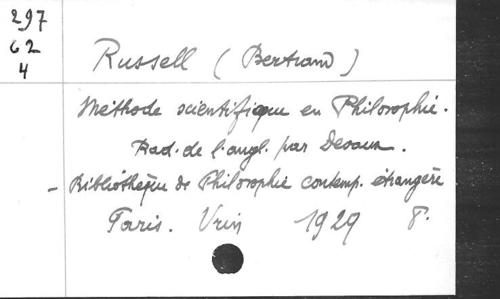 297
62
4
Russell (Bertrand)
Méthode scientifique en Philosophie.
Trad. de l'angl. par Devaux.
- Bibliothèque de Philosophie contemp. étrangère
Paris. Vrin 1929 8°.